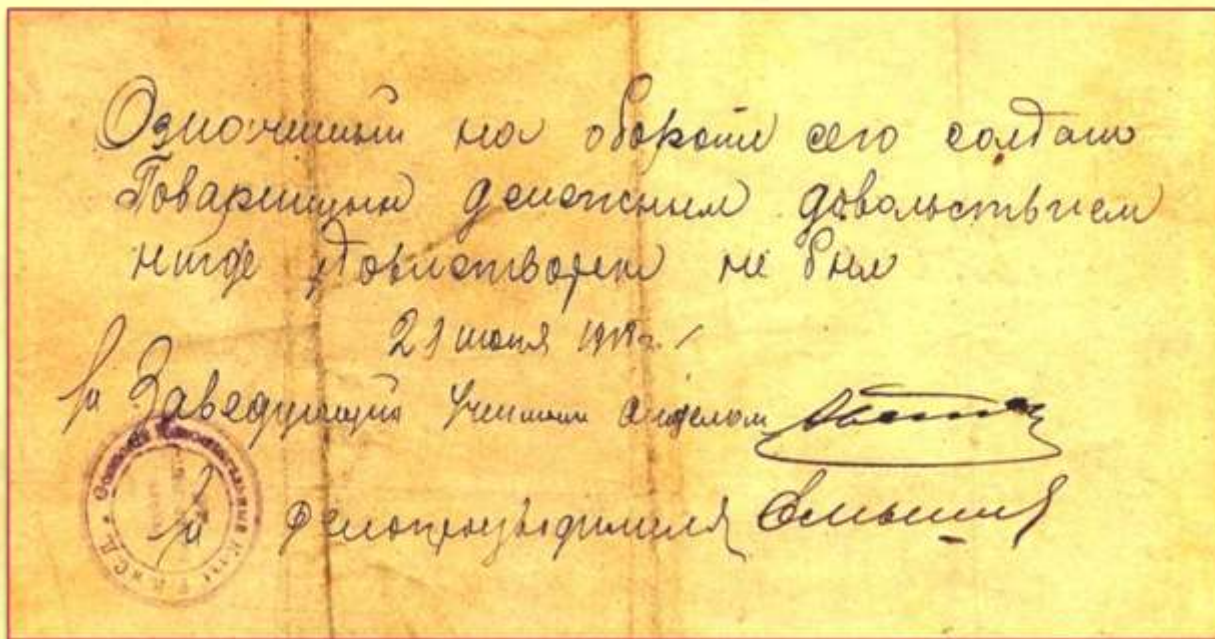 Означенный на обороте сего солдат
Товарищын денежным довольствием
нигде удовлетворен не был
21 июня 1918 г.
За Заведующий Учетным отделом
За делопроизводителя